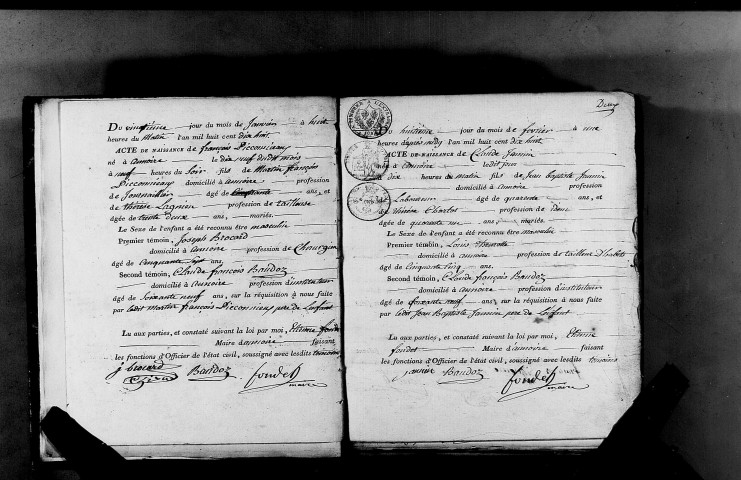 Du vingtieme jour du mois de Janvier à huit
heures du Matin l'an mil huit cent dix huit.
ACTE DE NAISSANCE de françois
né à annoire le dix neuf dudit mois
à neuf heures du Soir fils de Martin françois
domicilié à annoire profession
de agé de et
de thérèse profession de tailleuse
agée de trente deux ans, mariés.
Le Sexe de l'enfant a été reconnu être masculin
Premier témoin, Joseph Brocard
domicilié à annoire profession de
âgé de Cinquante Sept ans.
Second témoin, Claude françois Baudoz
domicilié à annoire profession d'instituteur
âgé de soixante neuf ans, sur la réquisition à nous faite
par ledit Martin françois père de l'enfant
Lu aux parties, et constaté suivant la loi par moi, Etienne fondet
Maire d'annoire faisant
les fonctions d'Officier de l'état civil, soussigné avec lesdits temoins
j brocard Baudoz fondet
maire
Deux
Du huitieme jour du mois de fevrier à une
heures d'après midy l'an mil huit cent dix huit
ACTE DE NAISSANCE de Claude Jannin
né à annoire ledit jour
à dix heures du matin fils de Jean baptiste Jannin
domicilié à annoire profession
de Laboureur agé de quarante ans, et
de profession de
agée de quarante ans, mariés.
Le Sexe de l'enfant a été reconnu être masculin
Premier témoin, Louis
domicilié à annoire profession de tailleur d'habits
âgé de Cinquante Cinq ans.
Second témoin, Claude françois Baudoz
domicilié à annoire profession d'instituteur
âgé de soixante neuf ans, sur la réquisition à nous faite
par ledit Jean Baptiste Jannin père de l'enfant
Lu aux parties, et constaté suivant la loi par moi, Etienne
fondet Maire d'annoire faisant
les fonctions d'Officier de l'état civil, soussigné avec lesdits temoins
jannin Baudoz fondet
maire